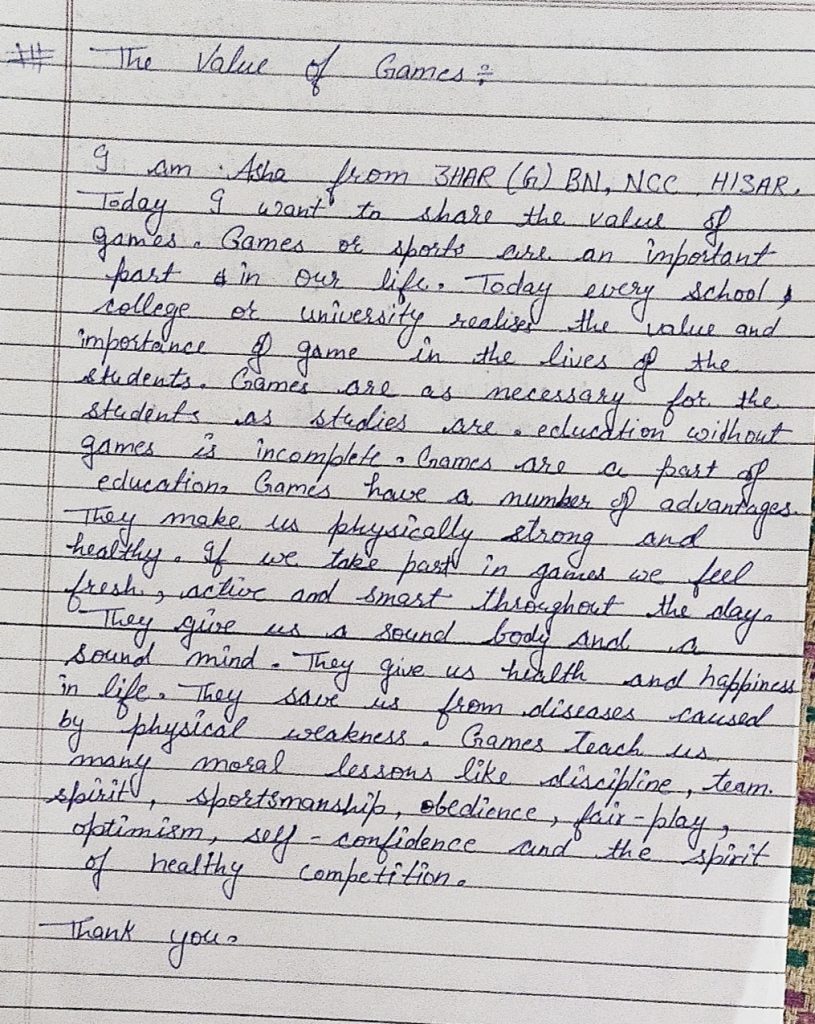 # The Value of Games :-
I am Asha from 3HAR (G) BN, NCC HISAR.
Today I want to share the value of
games. Games or sports are an important
part in our life. Today every school,
college or university realises the value and
importance of game in the lives of the
students. Games are as necessary for the
students as studies are. education without
games is incomplete. Games are a part of
education. Games have a number of advantages.
They make us physically strong and
healthy. If we take part in games we feel
fresh, active and smart throughout the day.
They give us a sound body and a
sound mind. They give us health and happiness
in life. They save us from diseases caused
by physical weakness. Games teach us
many moral lessons like discipline, team.
spirit, sportsmanship, obedience, fair-play,
optimism, self-confidence and the spirit
of healthy competition.
Thank you.